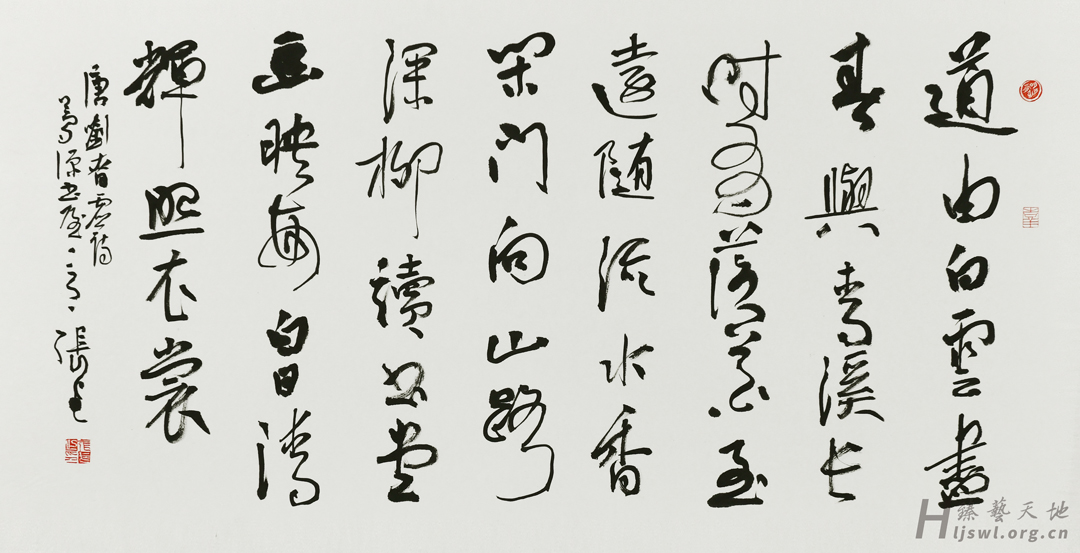 道由白雲盡
春與青溪長
时有落花至
遠随流水香
閑门向山路
深柳讀书堂
幽映每白日清
輝照衣裳
唐劉昚虛詩
源书屋 張
臻藝天地
Hljswl.org.cn